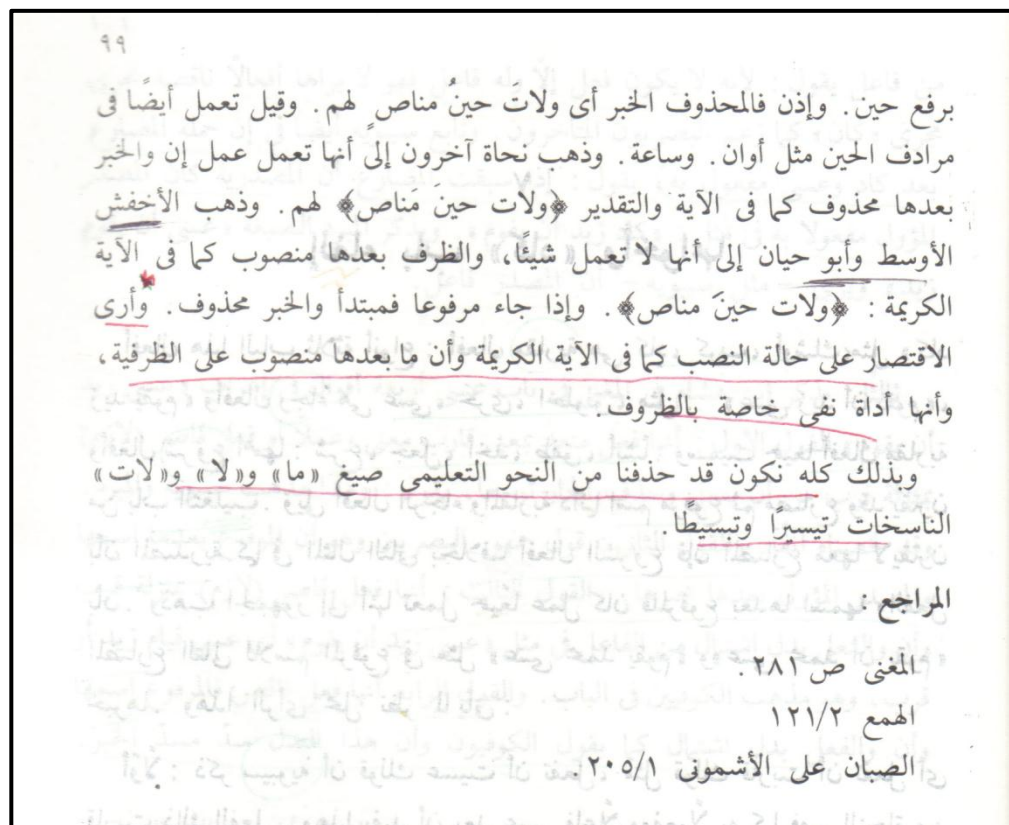 ٩٩
برفع حين. وإذن فالمحذوف الخبر أى ولات حينُ مناصٍ لهم. وقيل تعمل أيضًا فى
مرادف الحين مثل أوان. وساعة. وذهب نحاة آخرون إلى أنها تعمل عمل إن والخبر
بعدها محذوف كما فى الآية والتقدير ﴿ولات حينَ مَناص﴾ لهم. وذهب الأخفش
الأوسط وأبو حيان إلى أنها لا تعمل شيئًا، والظرف بعدها منصوب كما فى الآية
الكريمة: ﴿ولات حينَ مناص﴾. وإذا جاء مرفوعا فمبتدأ والخبر محذوف. وأرى
الاقتصار على حالة النصب كما فى الآية الكريمة وأن ما بعدها منصوب على الظرفية،
وأنها أداة نفى خاصة بالظروف.
وبذلك كله نكون قد حذفنا من النحو التعليمى صيغ «ما» و«لا» و«لات»
الناسخات تيسيرًا وتبسيطًا.
المراجع:
المغنى ص ٢٨١.
الهمع ١٢١/٢
الصبان على الأشمونى ٢٠٥/١.